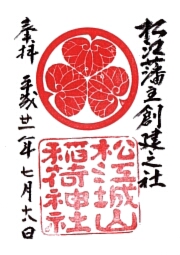 松江藩主創建之社
奉拝
平成廿二年七月十八日
松江城山
稲荷神社